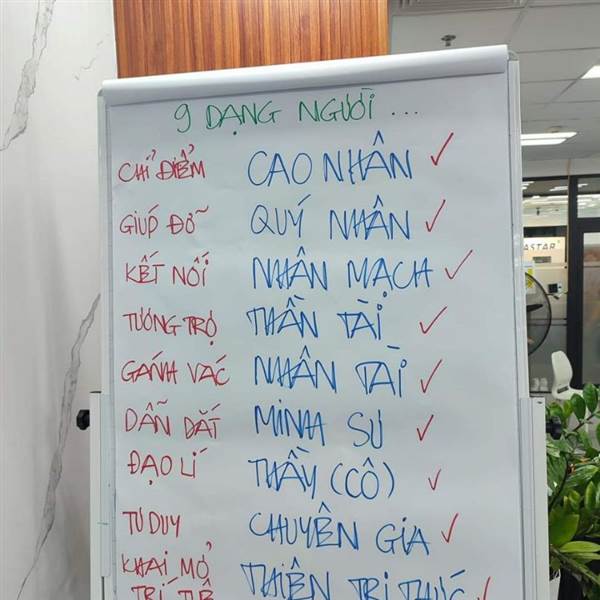 9 DẠNG NGƯỜI ...
CHỈ ĐIỂM CAO NHÂN ✓
GIÚP ĐỠ QUÝ NHÂN ✓
KẾT NỐI NHÂN MẠCH ✓
TƯƠNG TRỢ THẦN TÀI ✓
GÁNH VÁC NHÂN TÀI ✓
DẪN DẮT MINH SƯ ✓
ĐẠO LÍ THẦY (CÔ) ✓
TƯ DUY CHUYÊN GIA ✓
KHAI MỞ
TRÍ TUỆ THIỆN TRI THỨC ✓
ASTAR